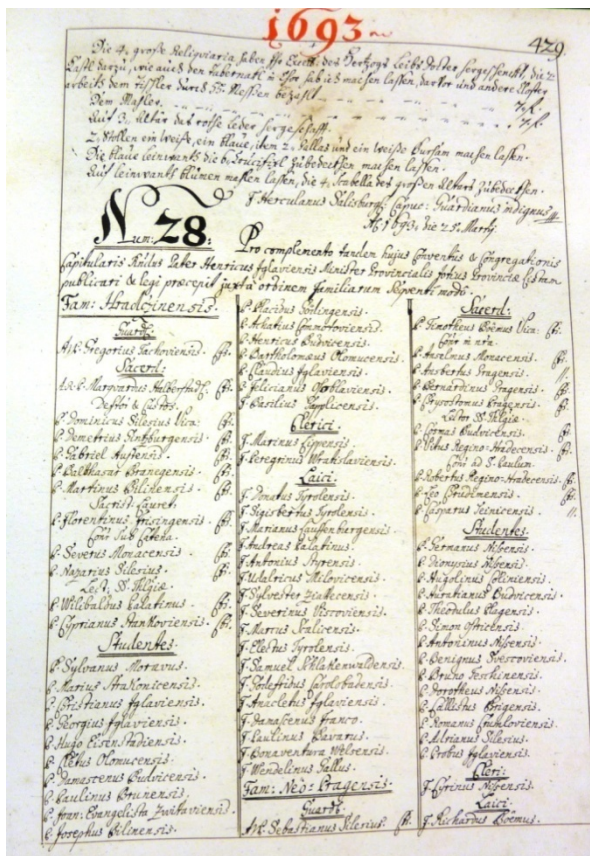 1693
429.
Die 4. große Reliquiaria, haben Ihro des Hertzogs Leibs Doctor hergeschenckt, die 2
darzu, wie auch den Tabernacl in Chor hab ich machen lassen, darvor und andere Kloster
arbeith dem Tischler durch Messen bezahlt.
Dem Mahler.
Auf 3. Altär das rothe leder hergeschafft.
2. Stollen ein weiß, ein blaue, item 2. Pallas und ein weiße Bursam machen lassen.
Die blaue leinwanth die 6. Crucifix zubedeckhen machen lassen.
Auf leinwanth blumen mahlen lassen, die 4. des großen Altars zubedeckhen.
F. Herculanus Salisburg: Capuc: Guardianus indignus
Aō. 1693. die 25. Martij
Num: 28:
Pro complemento tandem hujus Conventus & Congregationis
Capitularis Rñdus Pater Henricus Iglaviensis Minister Provincialis totius Provinciæ
publicari & legi præcepit juxta ordinem familiarum sequenti modo.
Fam: Hradčinensis.
Guard:
A.V.P. Gregorius Tachoviensis.
Sacerd:
A.V.P. Marquardus Halberstad:
Deffōr & Custōs.
P. Dominicus Silesius Vica:
P. Demetrius
P. Gabriel
P. Balthasar Pranegensis.
P. Martinus Bilinensis.
Sacrist: Lauret:
P. Florentinus Frisingensis.
P. Severus Monacensis.
P. Nazarius Silesius.
Lect: SS. Thlgiæ.
P. Wilibaldus Palatinus.
P. Cyprianus Stankoviensis.
Studentes.
P. Sylvanus Moravus.
P. Marius Strakonicensis.
P. Christianus Iglaviensis.
P. Georgius Iglaviensis.
P. Hugo Eisenstadiensis.
P. Cletus Olomucensis.
P. Damascenus Budvicensis.
P. Paulinus Brunensis.
P. Joan: Evangelista Zwitaviensis.
P. Josephus Bilinensis.
P. Placidus
P. Achatius Commotoviensis.
P. Henricus Budvicensis.
P. Bartholomæus Olomucensis.
P. Claudius Iglaviensis.
P. Felicianus
F. Basilius Töplicensis.
Clerici.
F. Marinus Lippensis.
F. Peregrinus Wratislaviensis.
Laici.
F. Donatus Tyrolensis.
F. Sigisbertus Tyrolensis.
F. Marianus Lauffenburgensis.
F. Andreas Palatinus.
F. Antonius Styrensis.
F. Udalricus Milovicensis.
F. Sylvester Ziatecensis.
F. Severinus
F. Marcus
F. Electus Tyrolensis.
F. Samuel Schlakenwaldensis.
F. Godefridus Carolobadensis.
F. Anacletus Iglaviensis.
F. Damascenus Franco.
F. Paulinus Bavarus.
F. Bonaventura
F. Wendelinus Gallus.
Fam: Neo: Pragensis.
Guard:
A.V.P. Sebastianus Silesius.
Sacerd:
P. Timotheus Boëmus Vica:
P. Anselmus Monacensis.
P. Ausbertus Pragensis.
P. Bernardinus Pragensis.
P. Chrysostomus Pragensis.
Lector SS. Thlgiæ.
P. Cosmas Budvicensis.
P. Vitus Regino-Hradecensis.
P. Robertus Regino-Hradecensis.
P. Leo Chrudimensis.
P. Casparus Teinicensis.
Studentes.
P. Germanus Nissensis.
P. Dionysius Nissensis.
P. Augolinus Coliniensis.
P. Auratianus Budvicensis.
P. Theodulus Slagensis.
P. Simon
P. Antoninus Nissensis.
P. Benignus
P. Bruno Teschinensis.
P. Dorotheus Nissensis.
P. Callistus Brigensis.
P. Romanus Crumloviensis.
P. Adrianus Silesius.
P. Probus Iglaviensis.
Cleri:
F. Cyrinus Nissensis.
Laici.
F. Richardus Boemus.